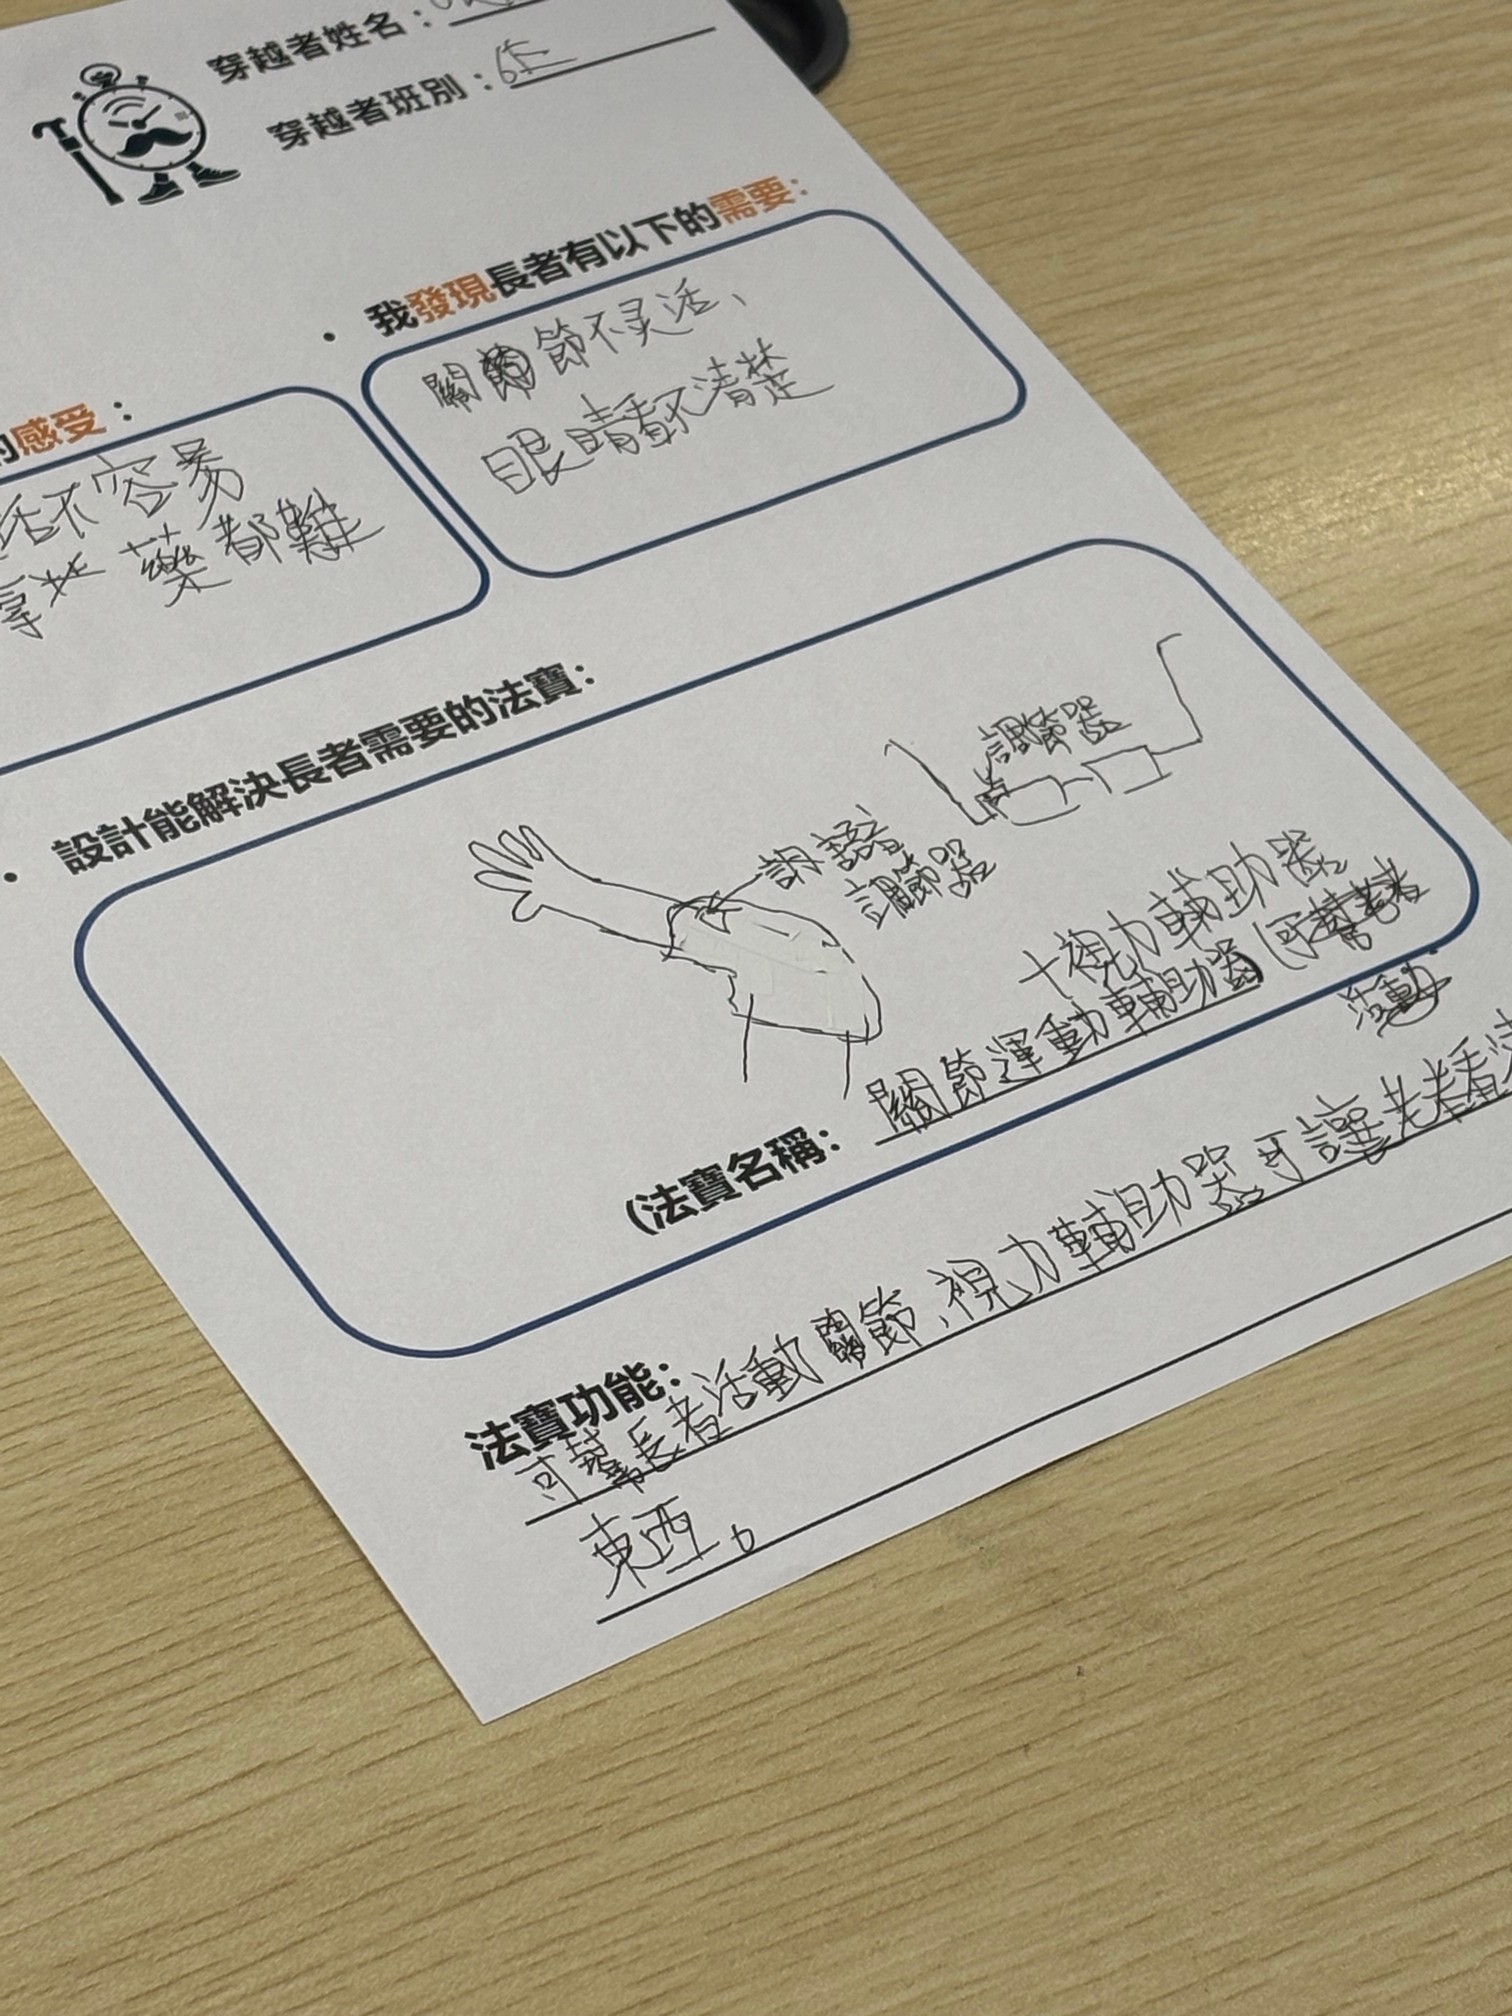 穿越者姓名：
穿越者班別：6
·我發現長者有以下的需要：
關節不灵活、
眼睛看不清楚
的感受：
活不容易
拿 藥都難
·設計能解決長者需要的法寶：
調節器
調節器
+視力輔助器
(法寶名稱：關節運動輔助器
法寶功能：
可幫長者活動關節、視力輔助器可讓老者看
東西。